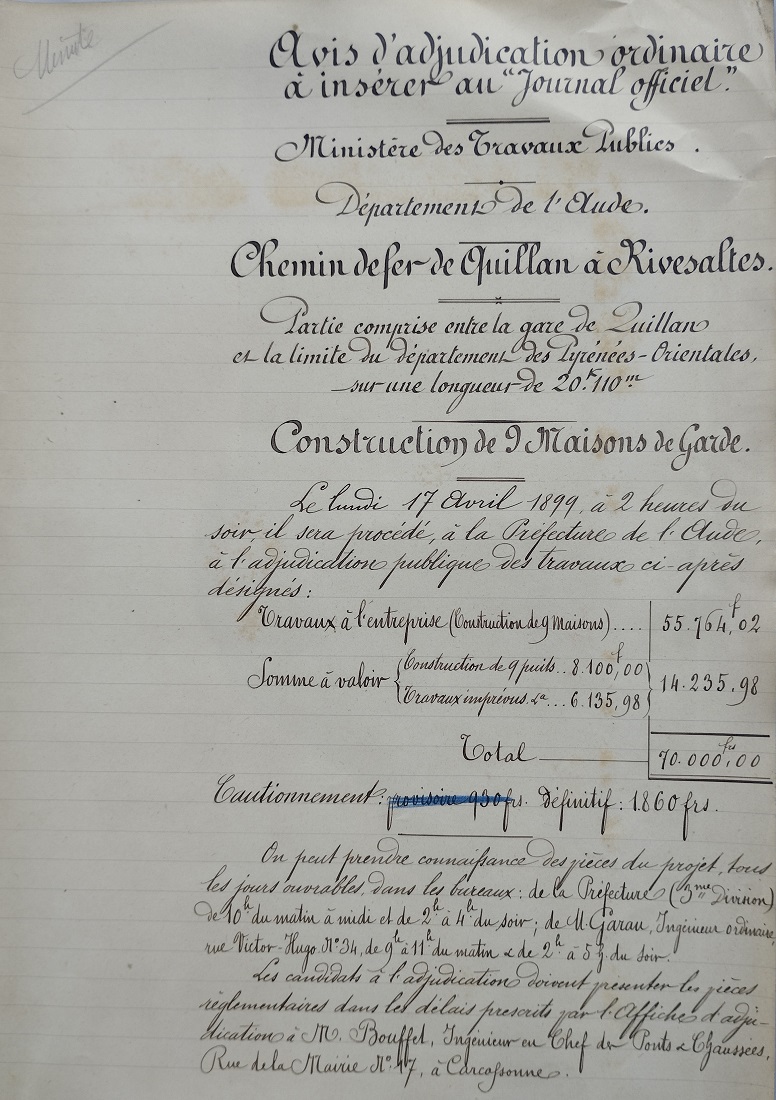 Minute
Avis d'adjudication ordinaire
à insérer au "Journal officiel".
Ministère des Travaux Publics.
Département de l'Aude.
Chemin de fer de Quillan à Rivesaltes.
Partie comprise entre la gare de Quillan
et la limite du département des Pyrénées-Orientales,
sur une longueur de 20k.110m
Construction de 9 Maisons de Garde.
Le lundi 17 Avril 1899, à 2 heures du
soir, il sera procédé, à la Préfecture de l'Aude,
à l'adjudication publique des travaux ci-après
désignés:
Travaux à l'entreprise (Construction de 9 Maisons).... 55.764f,02
Somme à valoir { Construction de 9 puits.. 8.100f,00
Travaux imprévus &a... 6.135,98 } 14.235,98
Total 70.000frs,00
Cautionnement: provisoire 930frs. définitif: 1.860 frs.
On peut prendre connaissance des pièces du projet, tous
les jours ouvrables, dans les bureaux: de la Préfecture (3me Division)
de 10h du matin à midi et de 2h à 4h du soir; de M. Garau, Ingénieur ordinaire,
rue Victor-Hugo No 34, de 9h à 11h du matin & de 2h à 5h. du soir.
Les candidats à l'adjudication doivent présenter les pièces
règlementaires dans les délais prescrits par l'Affiche d'adju-
dication à M. Bouffet, Ingénieur en Chef des Ponts & Chaussées,
Rue de la Mairie No 17, à Carcassonne.